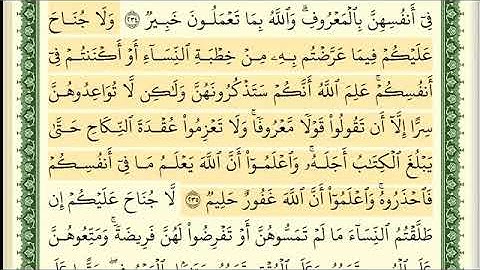 فِىٓ أَنفُسِهِنَّ بِٱلْمَعْرُوفِ ۗ وَٱللَّهُ بِمَا تَعْمَلُونَ خَبِيرٌ ﴿٢٣٤﴾ وَلَا جُنَاحَ
عَلَيْكُمْ فِيمَا عَرَّضْتُم بِهِۦ مِنْ خِطْبَةِ ٱلنِّسَآءِ أَوْ أَكْنَنتُمْ فِىٓ
أَنفُسِكُمْ ۚ عَلِمَ ٱللَّهُ أَنَّكُمْ سَتَذْكُرُونَهُنَّ وَلَٰكِن لَّا تُوَاعِدُوهُنَّ
سِرًّا إِلَّآ أَن تَقُولُوا۟ قَوْلًا مَّعْرُوفًا ۚ وَلَا تَعْزِمُوا۟ عُقْدَةَ ٱلنِّكَاحِ حَتَّىٰ
يَبْلُغَ ٱلْكِتَٰبُ أَجَلَهُۥ ۚ وَٱعْلَمُوٓا۟ أَنَّ ٱللَّهَ يَعْلَمُ مَا فِىٓ أَنفُسِكُمْ
فَٱحْذَرُوهُ ۚ وَٱعْلَمُوٓا۟ أَنَّ ٱللَّهَ غَفُورٌ حَلِيمٌ ﴿٢٣٥﴾ لَّا جُنَاحَ عَلَيْكُمْ إِن
طَلَّقْتُمُ ٱلنِّسَآءَ مَا لَمْ تَمَسُّوهُنَّ أَوْ تَفْرِضُوا۟ لَهُنَّ فَرِيضَةً ۚ وَمَتِّعُوهُنَّ